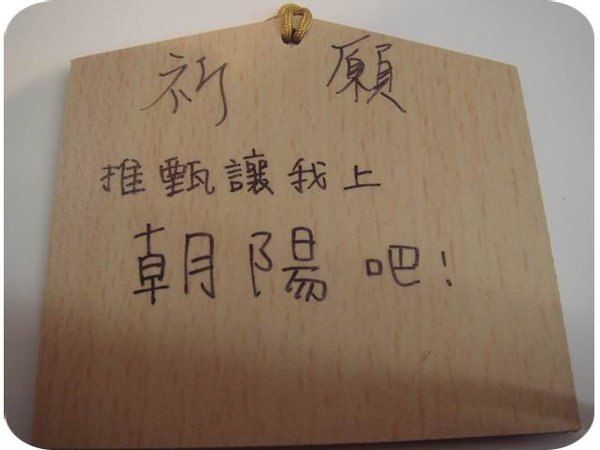 祈願
推甄讓我上
朝陽吧!